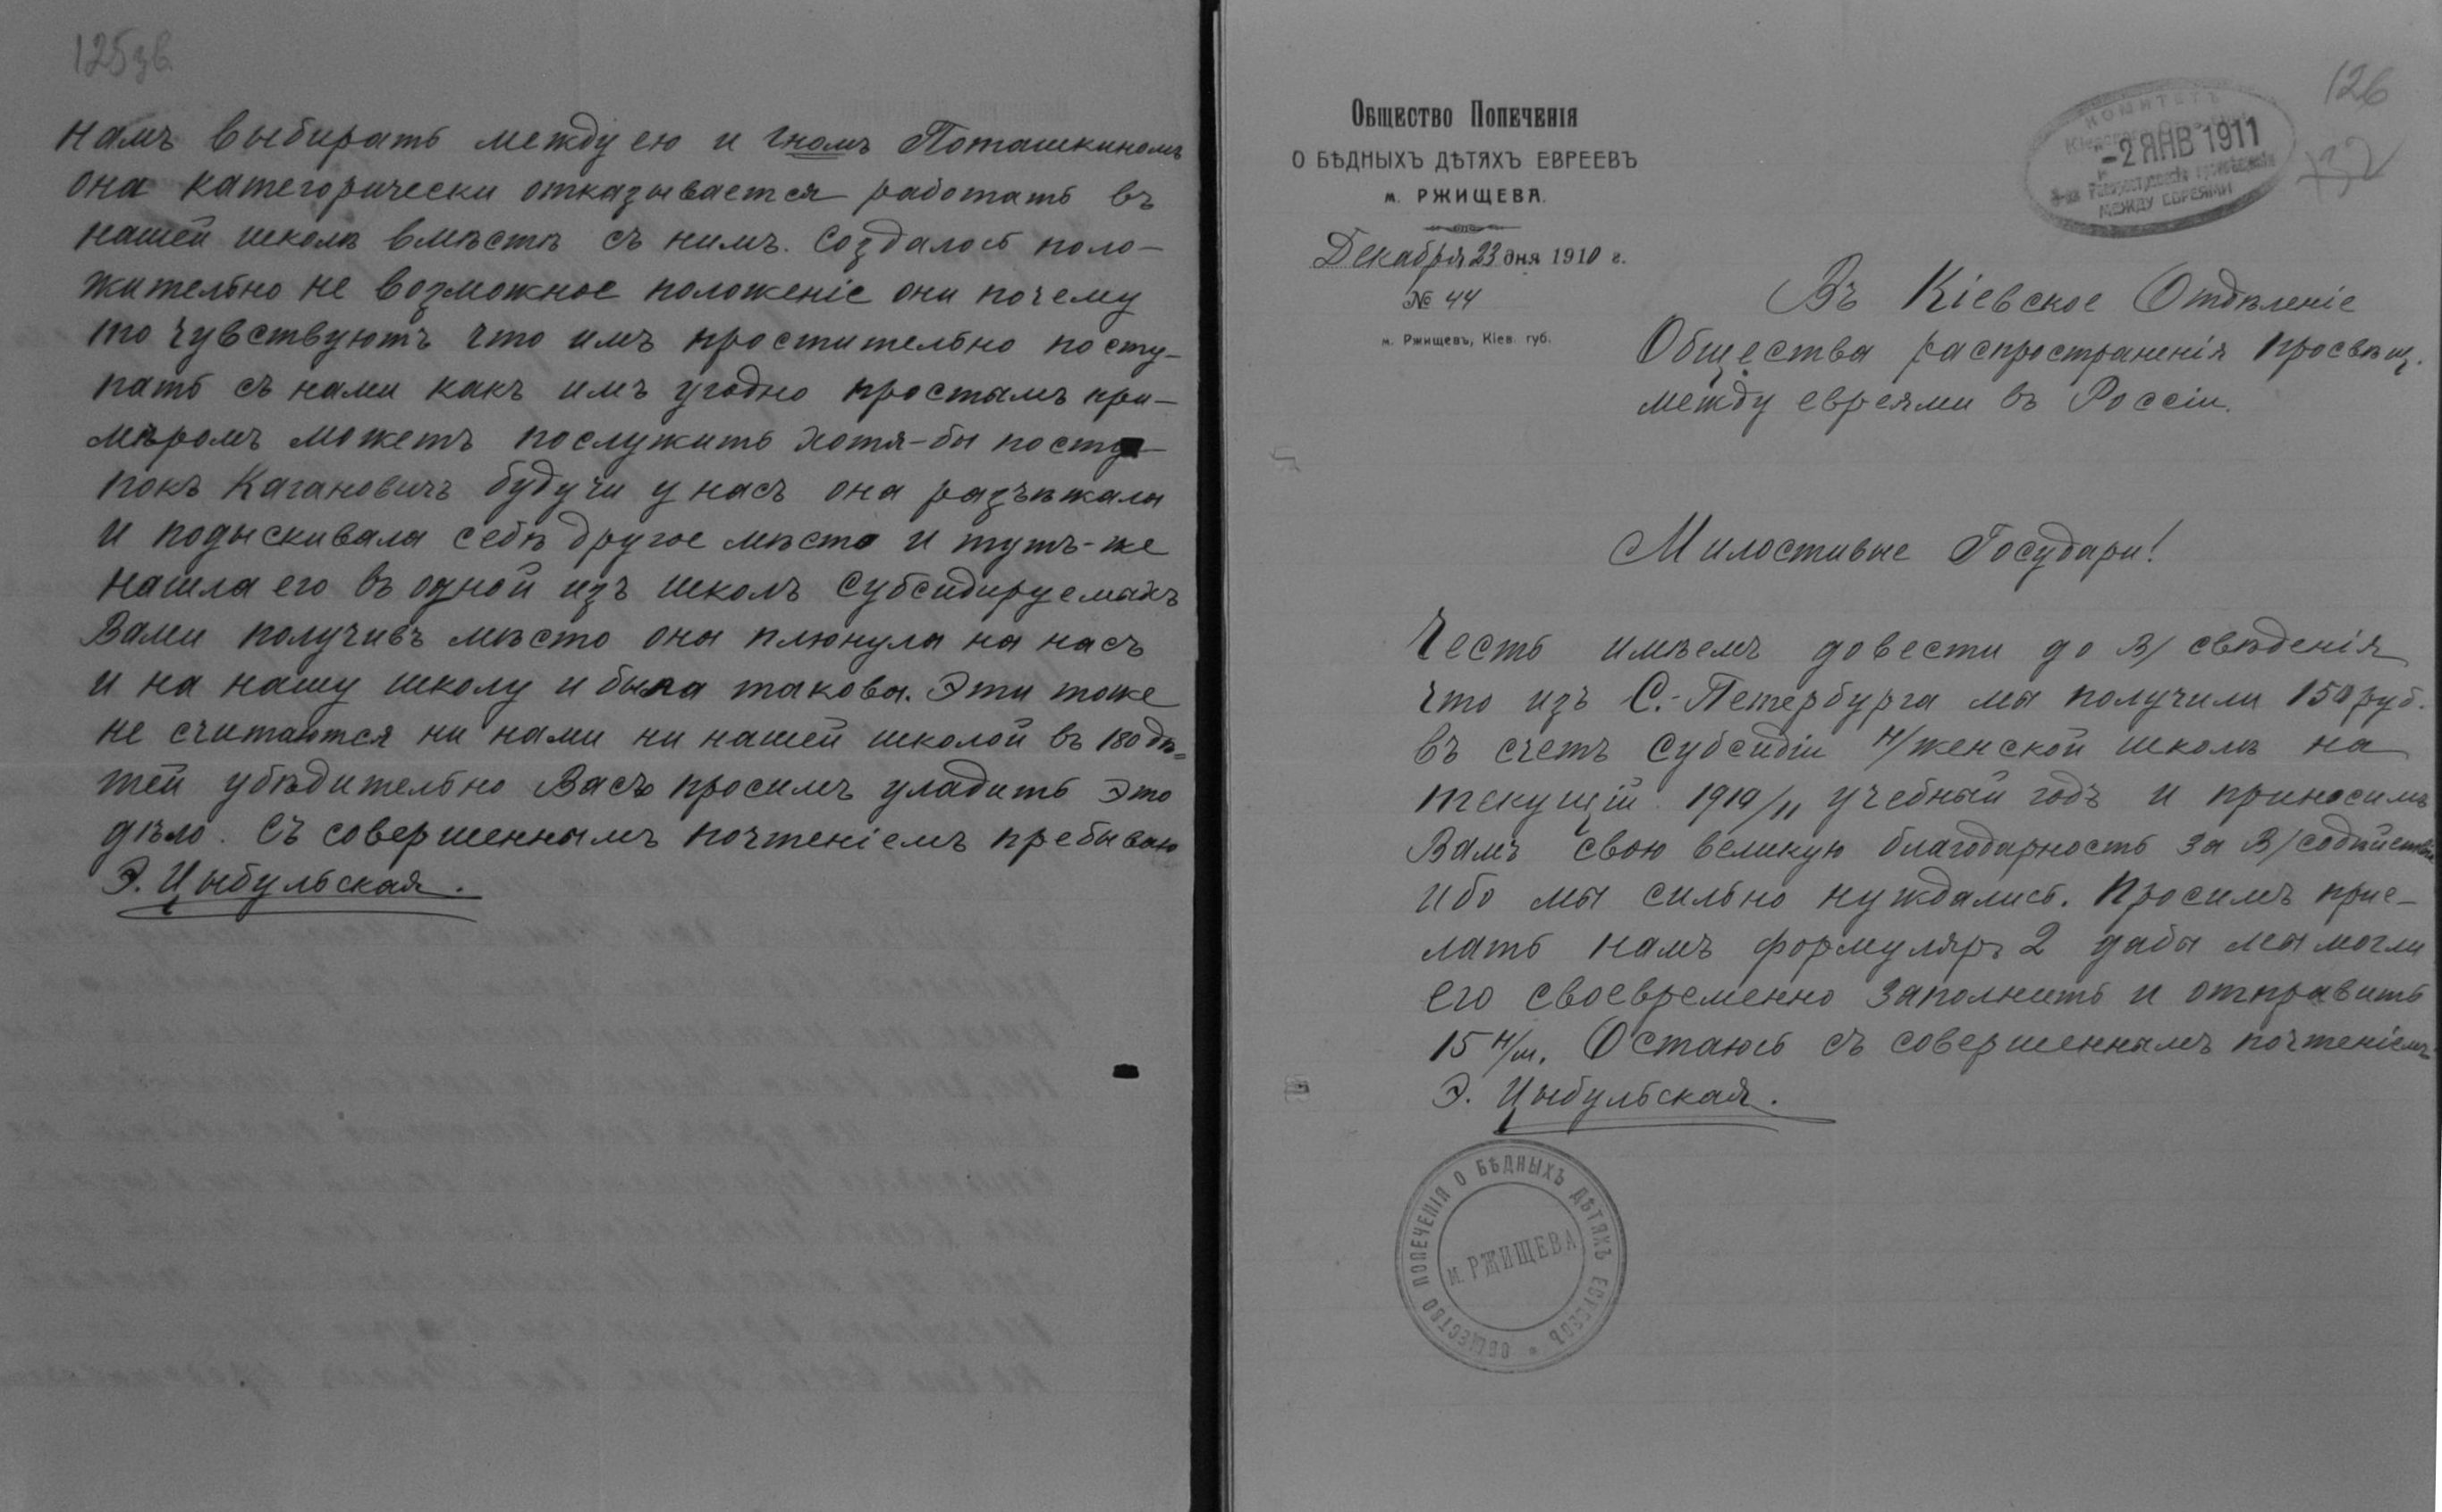 125зв.
намъ выбирать между ею и гномъ Поташкиномъ
она категорически отказывается работать въ
нашей школѣ вмѣстѣ съ нимъ. Создалось поло-
жительно не возможное положеніе они почему
то чувствуютъ что имъ простительно посту-
пать съ нами какъ имъ угодно простымъ при-
мѣромъ можетъ послужить хотя-бы посту-
покъ Кагановичъ будучи у насъ она разъѣжала
и подыскивала себѣ другое мѣсто и тутъ-же
нашла его въ одной изъ школъ субсидируемыхъ
Вами получивъ мѣсто она плюнула на насъ
и на нашу школу и была такова. Эти тоже
не считаются ни нами ни нашей школой въ 180 дѣ=
тей убѣдительно Васъ просимъ уладить это
дѣло. Съ совершеннымъ почтеніемъ пребываю
Э. Цыбульская.
126
Общество Попеченія
О БѢДНЫХЪ ДѢТЯХЪ ЕВРЕЕВЪ
м. РЖИЩЕВА.
Декабря 23 дня 1910 г.
№ 44
м. Ржищевъ, Кіев. губ.
КОМИТЕТЪ
-2 ЯНВ 1911
МЕЖДУ ЕВРЕЯМИ
Въ Кіевское Отдѣленіе
Общества распространенія просвѣщ.
между евреями въ Россіи.
Милостивые Государи!
Честь имѣемъ довести до В/ свѣденія
что изъ С.-Петербурга мы получили 150 руб.
въ счетъ субсидіи н/женской школѣ на
текущій 1910/11 учебный годъ и приносимъ
Вамъ свою великую благодарность за В/содѣйствіе
ибо мы сильно нуждались. Просимъ прис-
лать намъ формуляръ 2 дабы мы могли
его своевременно заполнить и отправить
15 н/м. Остаюсь съ совершеннымъ почтеніемъ
Э. Цыбульская.
ОБЩЕСТВО ПОПЕЧЕНІЯ О БѢДНЫХЪ ДѢТЯХЪ ЕВРЕЕВЪ
м. РЖИЩЕВА